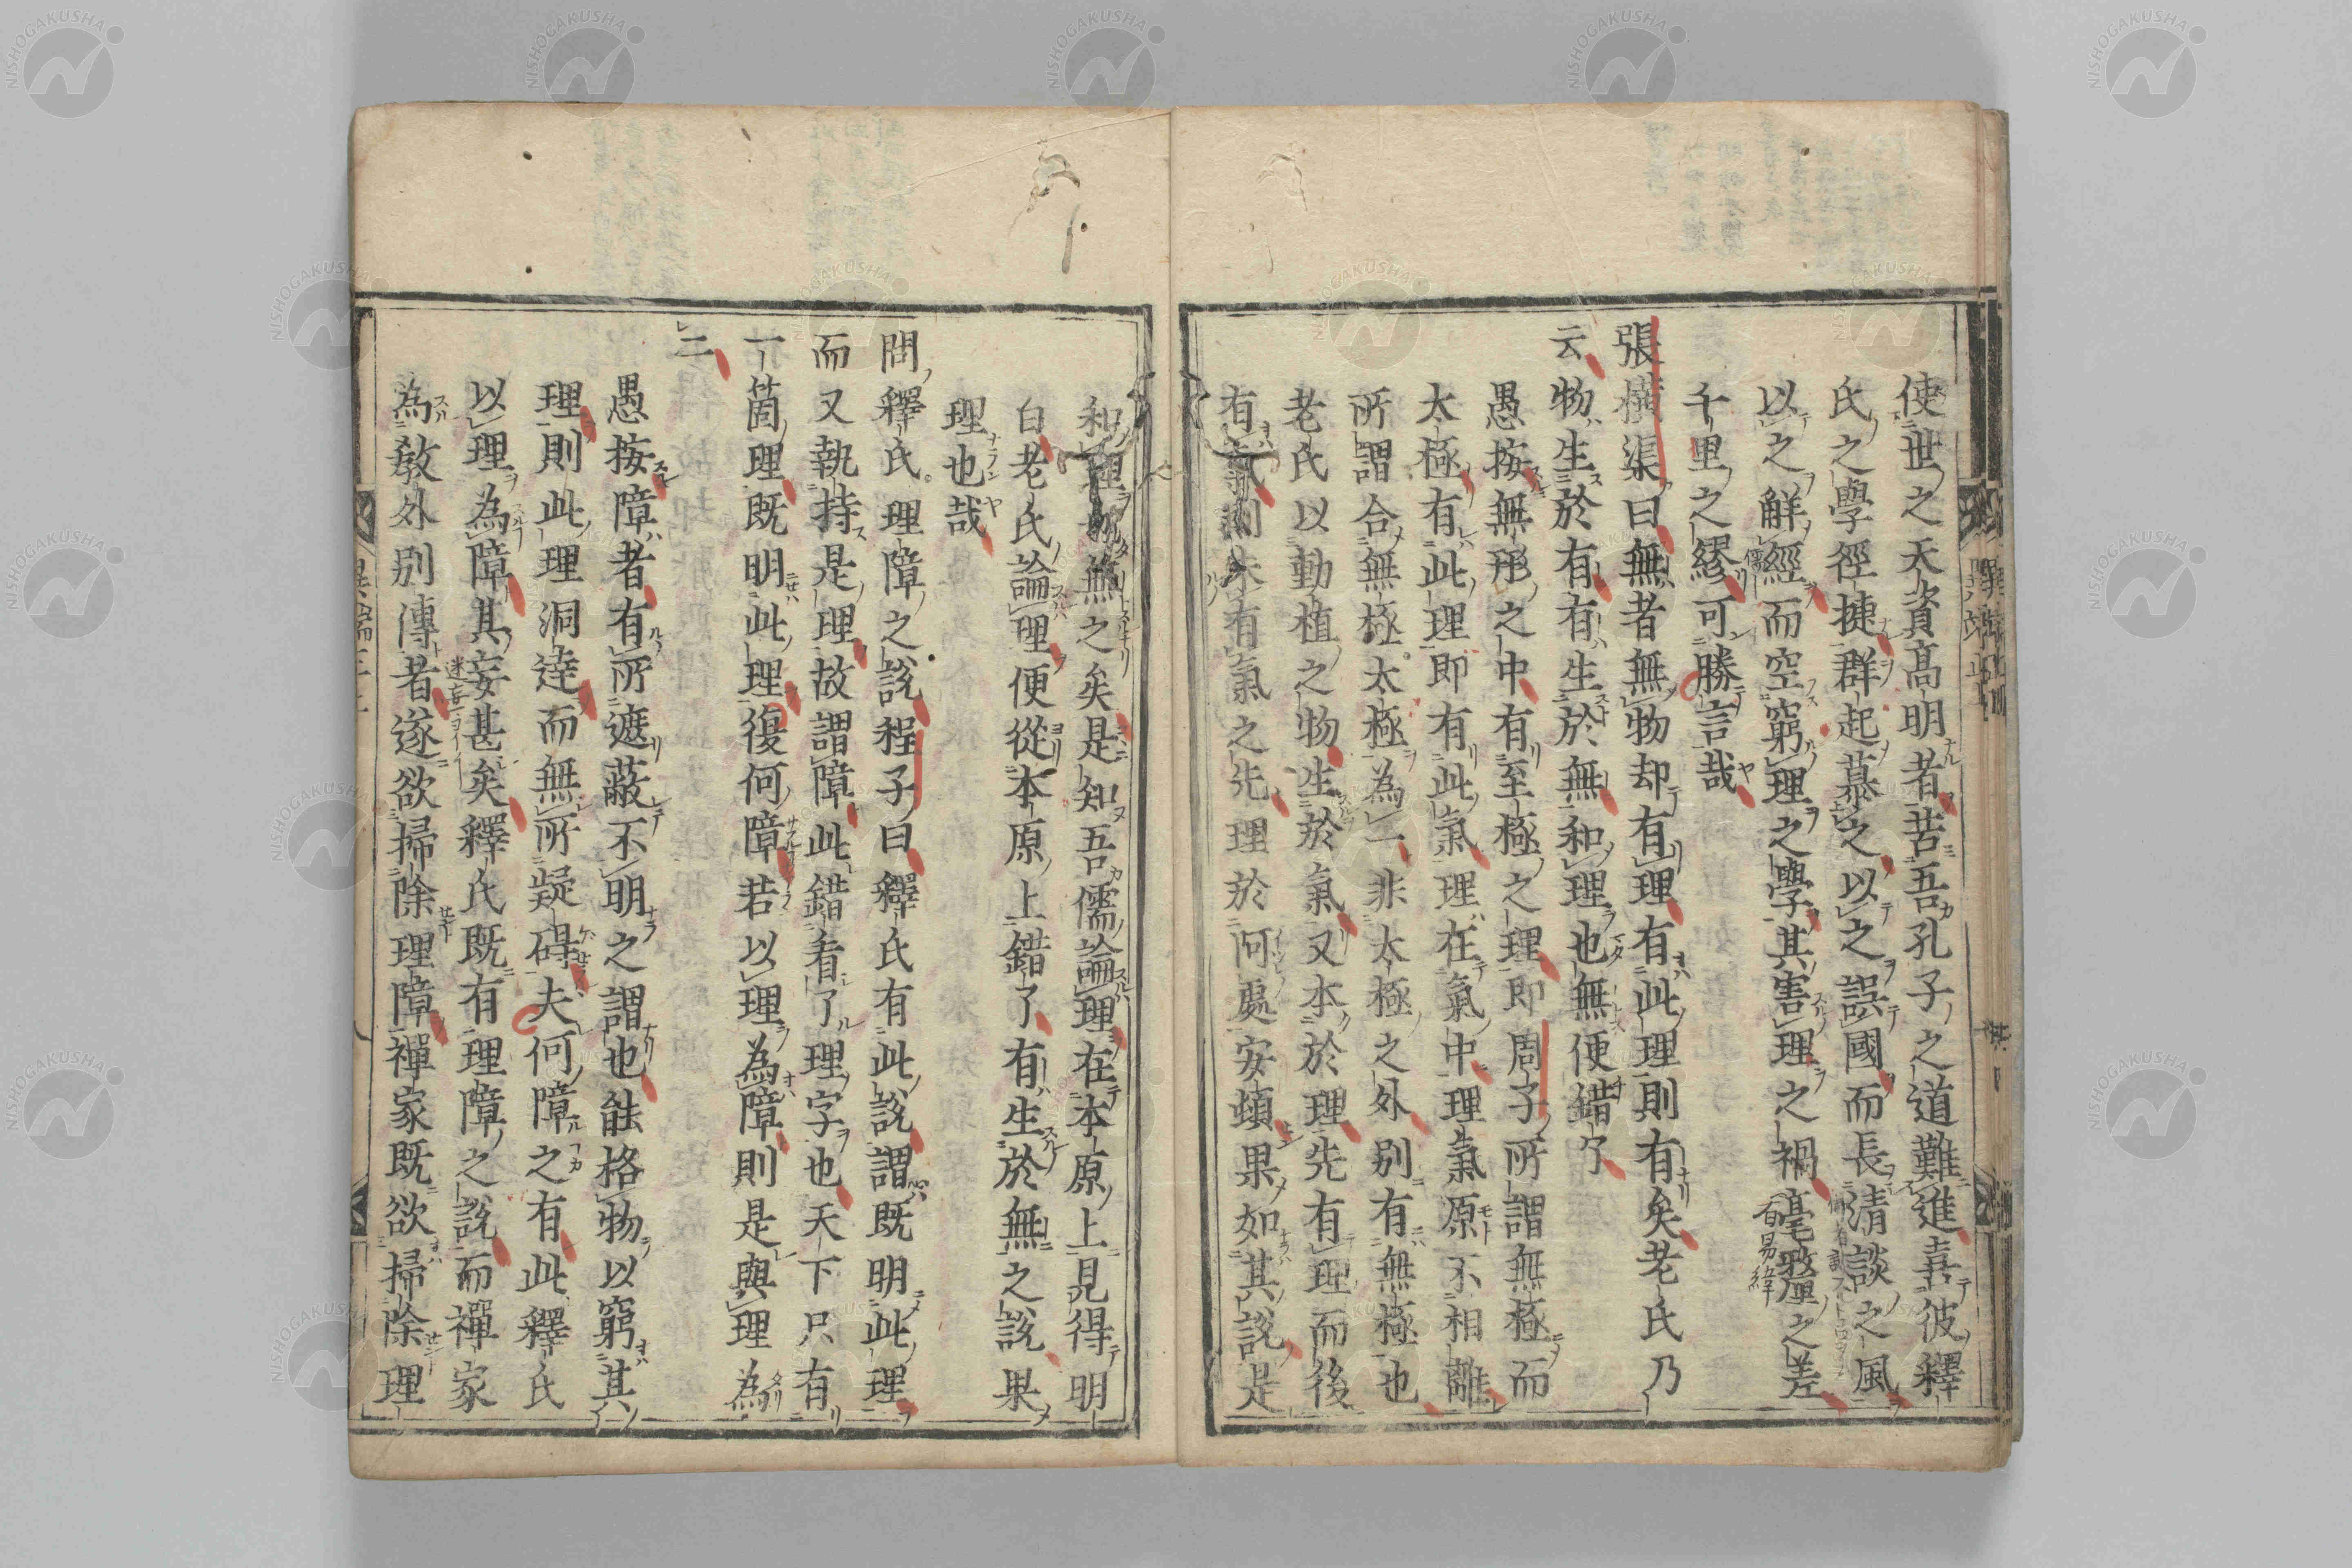 使世之天資高明者苦吾孔子之道難進喜彼釋
氏之學徑捷群起慕之以之誤國而長清談之風
以之解經而空窮理之學其害理之禍毫釐之差
千里之繆可勝言哉
張橫渠曰無者無物却有理有此理則有矣老氏乃
云物生於有有生於無和理也無便錯了
愚按無形之中有至極之理即周子所謂無極而
太極有此理即有此氣理在氣中理氣原不相離
所謂合無極太極為一非太極之外别有無極也
老氏以動植之物生於氣又本於理先有理而後
有氣則未有氣之先理於何處安頓果如其說是
和理無之矣是知吾儒論理在本原上見得明
白老氏論理便從本原上錯了有生於無之說果
理也哉
問釋氏理障之說程子曰釋氏有此說謂既明此理
而又執持是理故謂障此錯看了理字也天下只有
一箇理既明此理復何障若以理為障則是與理為
二
愚按障者有所遮蔽不明之謂也能格物以窮其
理則此理洞達而無所疑碍夫何障之有此釋氏
以理為障其妄甚矣釋氏既有理障之說而禪家
為教外别傳者遂欲掃除理障禪家既欲掃除理